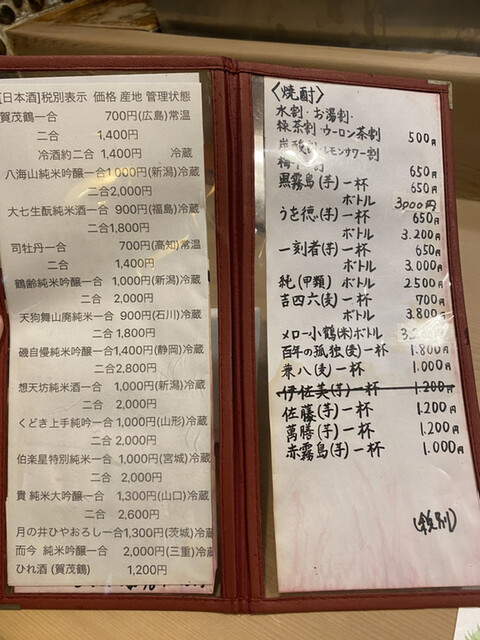 [日本酒]税別表示 価格 産地 管理状態
賀茂鶴一合 700円(広島)常温
二合 1,400円
冷酒約二合 1,400円 冷蔵
八海山純米吟醸一合1,000円(新潟)冷蔵
二合2,000円
大七生酛純米酒一合 900円(福島)冷蔵
二合1,800円
司牡丹一合 700円(高知)常温
二合 1,400円
鶴齢純米吟醸一合 1,000円(新潟)冷蔵
二合 2,000円
天狗舞山廃純米一合 900円(石川)冷蔵
二合 1,800円
磯自慢純米吟醸一合1,400円(静岡)冷蔵
二合2,800円
想天坊純米酒一合 1,000円(新潟)冷蔵
二合 2,000円
くどき上手純吟一合 1,000円(山形)冷蔵
二合 2,000円
伯楽星特別純米一合 1,000円(宮城)冷蔵
二合 2,000円
貴 純米大吟醸一合 1,300円(山口)冷蔵
二合 2,600円
月の井ひやおろし一合1,300円(茨城)冷蔵
而今 純米吟醸一合 2,000円(三重)冷蔵
ひれ酒 (賀茂鶴) 1,200円
〈焼酎〉
水割・お湯割・
緑茶割・ウーロン茶割 500円
レモンサワー割
650円
黒霧島(芋)一杯 650円
ボトル 3,000円
うを徳(芋)一杯 650円
ボトル 3.200円
一刻者(芋)一杯 650円
ボトル 3.000円
純(甲類)ボトル 2500円
吉四六(麦)一杯 700円
ボトル 3.800円
メロー小鶴(米)ボトル
百年の孤独(麦)一杯 1.800円
兼八(麦)一杯 1.000円
伊佐美(芋)一杯 1.200円
佐藤(芋)一杯 1.200円
萬膳(芋)一杯 1.200円
赤霧島(芋)一杯 1.000円
(税別)